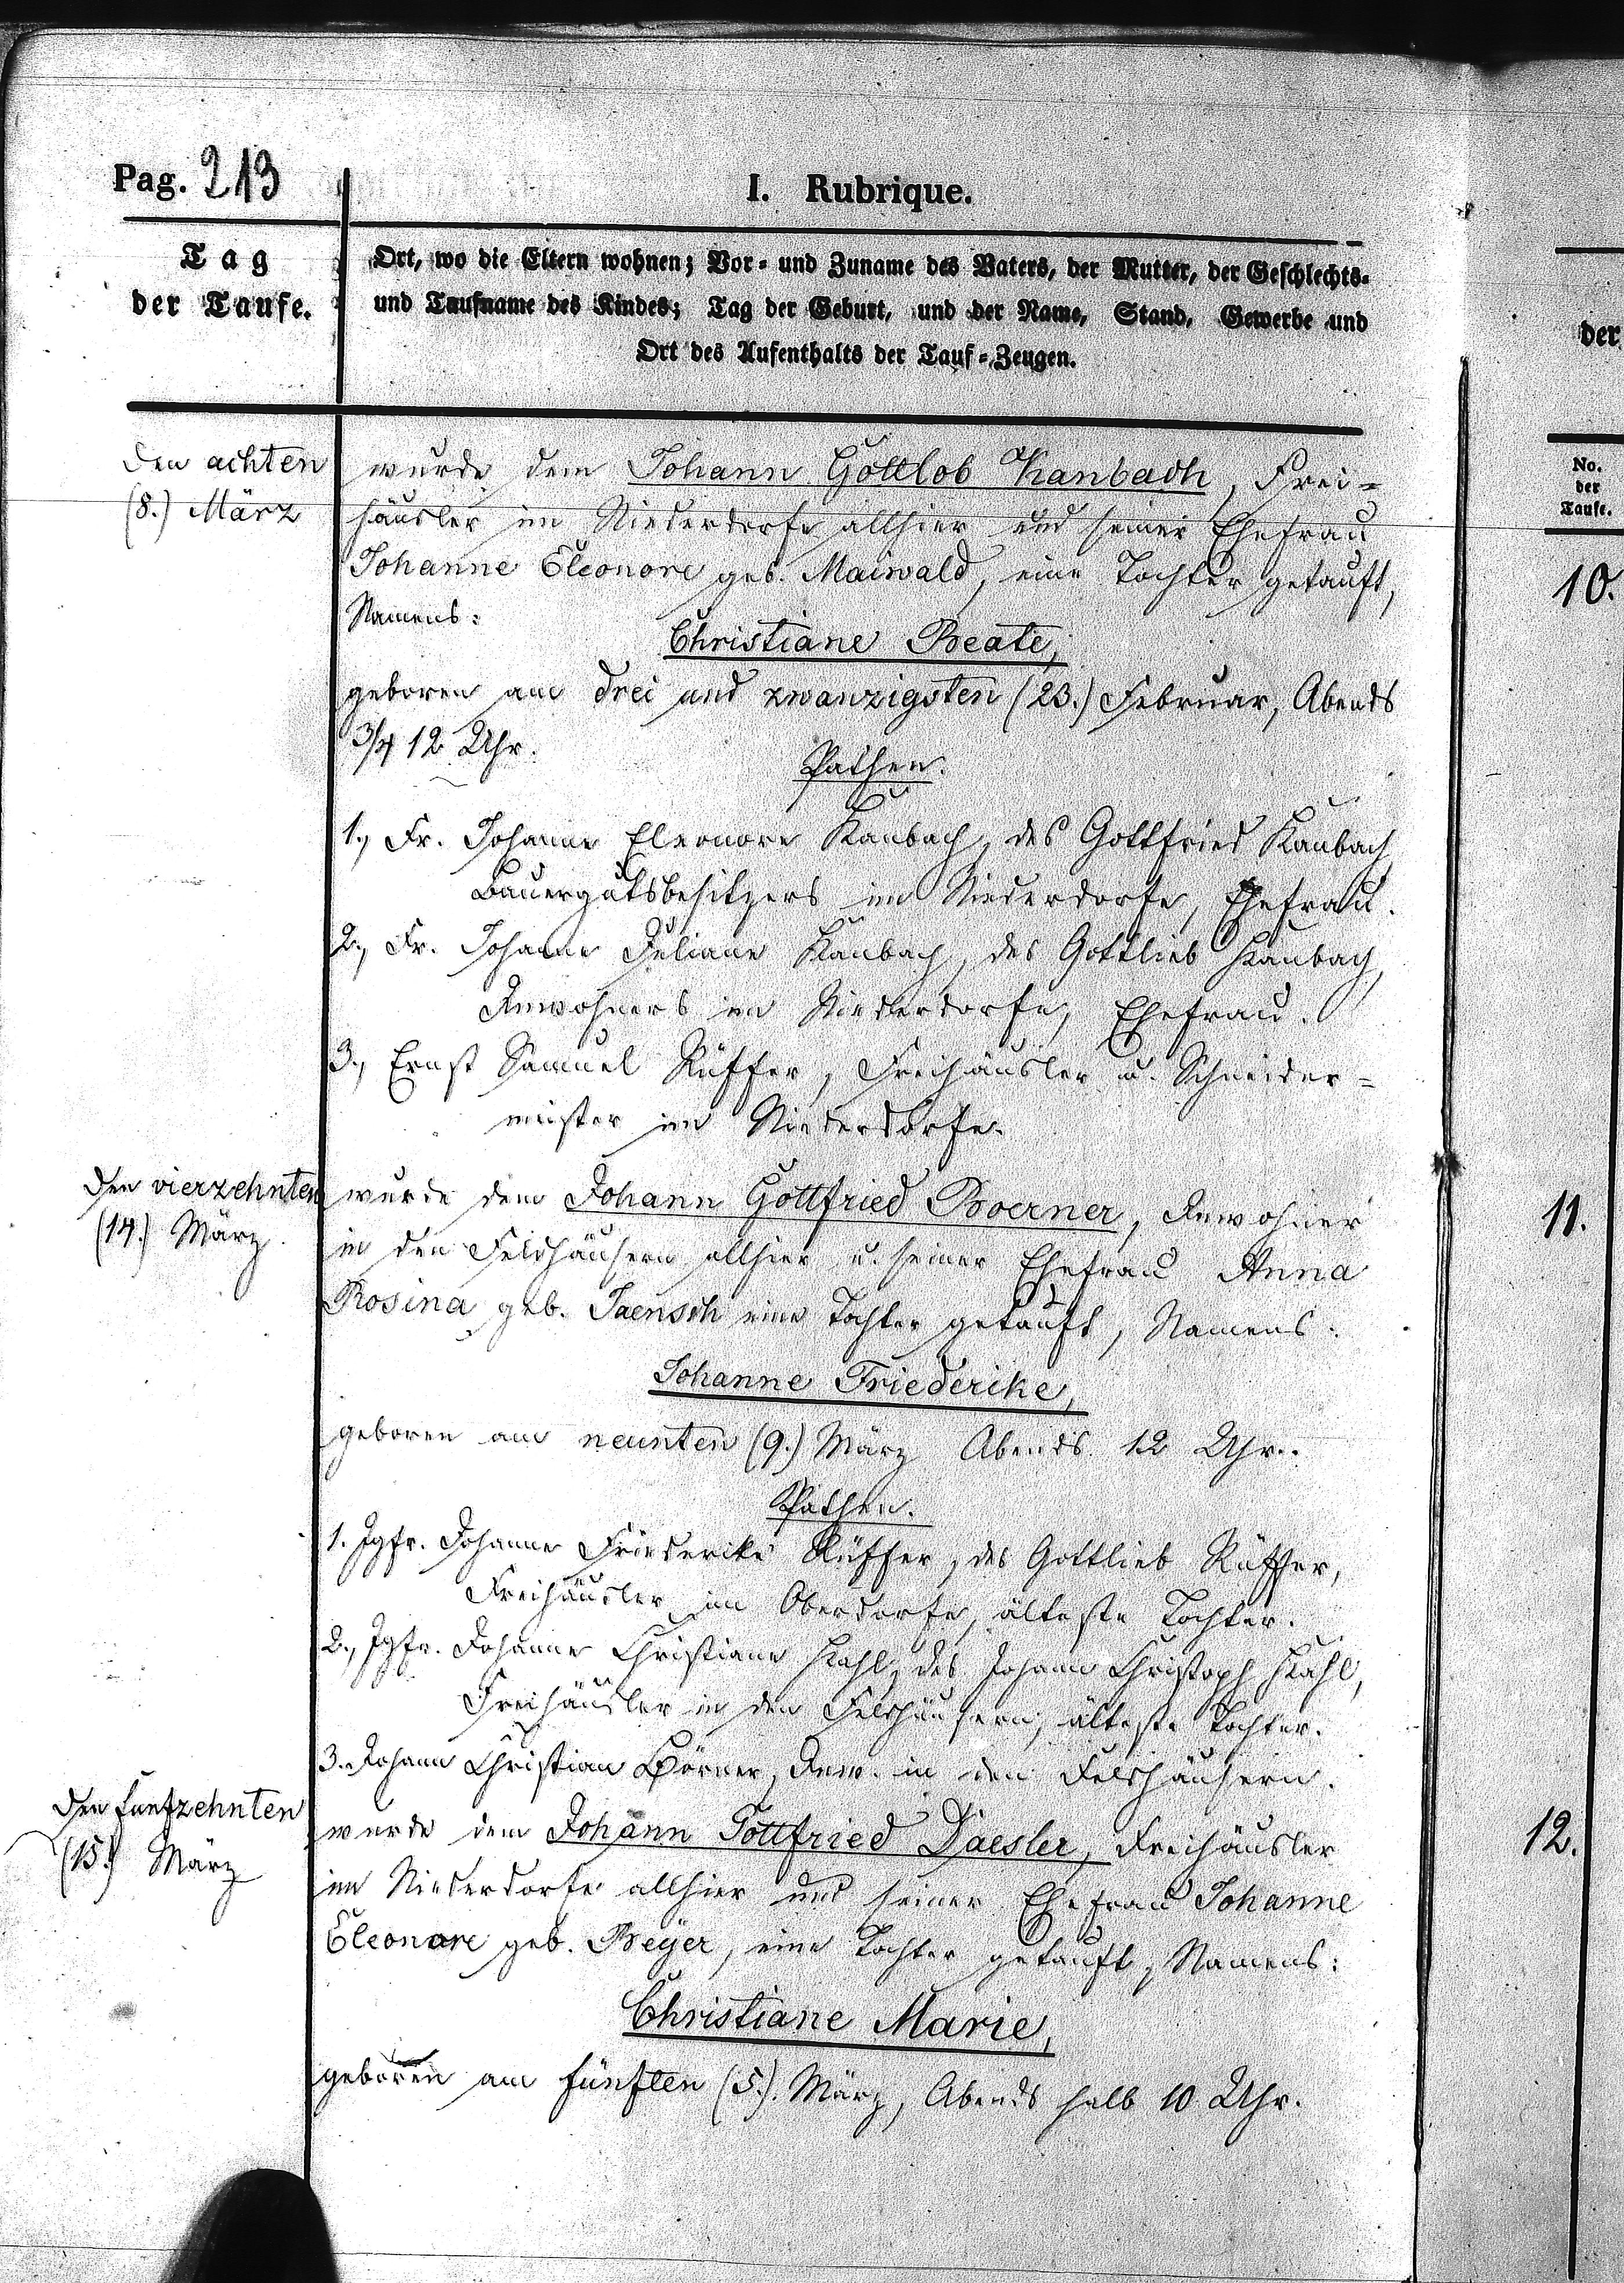 Pag. 213
I. Rubrique.
Tag
der Taufe.
Ort, wo die Eltern wohnen; Vor- und Zuname des Vaters, der Mutter, der Geschlechts-
und Taufname des Kindes; Tag der Geburt, und der Name, Stand, Gewerbe und
Ort des Aufenthalts der Tauf-Zeugen.
der
No.
der
Taufe.
den achten
(8.) März
wurde dem Johann Gottlob Kanbach, Frei=
häusler im Niederdorfe allhier und seiner Ehefrau
Johanne Eleonore geb. Maiwald, eine Tochter getauft,
10.
Namens:
Christiane Beate,
geboren am drei und zwanzigsten (23.) Februar, Abends
3/4 12 Uhr.
Pathen.
1., Fr. Johanne Eleonore Kanbach, des Gottfried Kanbach
Bauergutsbesitzers im Niederdorfe, Ehefrau.
2., Fr. Johanne Juliane Kanbach, des Gottlieb Kanbach,
Inwohners im Niederdorfe, Ehefrau.
3., Ernst Samuel Rüffer, Freihäusler u. Schneider=
meister im Niederdorfe.
den vierzehnten
(14.) März
wurde dem Johann Gottfried Boerner, Inwohner
in den Feldhäusern allhier u. seiner Ehefrau Anna
Rosina geb. Jaensch eine Tochter getauft, Namens:
11.
Johanne Friederike,
geboren am neunten (9.) März Abends 12 Uhr.
Pathen.
1. Jgfr. Johanne Friederike Rüffer, des Gottlieb Rüffer,
Freihäusler im Oberdorfe, älteste Tochter.
2., Jgfr. Johanne Christiane Kahl, des Johann Christoph Kahl,
Freihäusler in den Feldhäusern, älteste Tochter.
3. Johann Christian Börner, Inw. in den Feldhäusern.
den funfzehnten
(15.) März
wurde dem Johann Gottfried Daesler, Freihäusler
im Niederdorfe allhier und seiner Ehefrau Johanne
Eleonore geb. Beyer, eine Tochter getauft, Namens:
12.
Christiane Marie,
geboren am fünften (5.) März, Abends halb 10 Uhr.